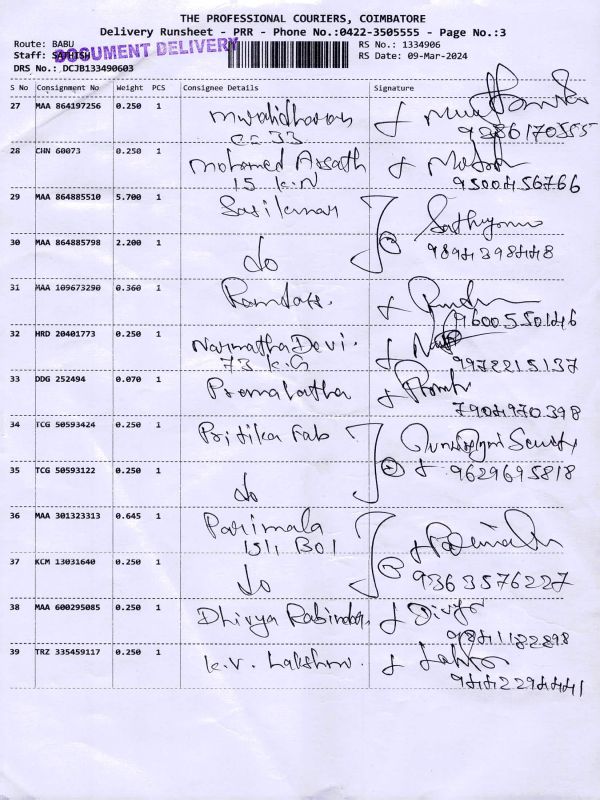 THE PROFESSIONAL COURIERS, COIMBATORE
Delivery Runsheet - PRR - Phone No.:0422-3505555 - Page No.:3
Route: BABU RS No.: 1334906
Staff: SATHISH DOCUMENT DELIVERY RS Date: 09-Mar-2024
DRS No.: DCJB133490603
S No Consignment No Weight PCS Consignee Details Signature
27 MAA 864197256 0.250 1 Muralidharan
CC 33 9286170555
28 CHN 60073 0.250 1 Mohamed Assath
15 K.N 9500456766
29 MAA 864885510 5.700 1 Sasikumar
30 MAA 864885798 2.200 1 do 9894398448
31 MAA 109673290 0.360 1 Ramdass.
9600550146
32 HRD 20401773 0.250 1 Narmatha Devi.
73 K.G 9972215137
33 DDG 252494 0.070 1 Premalatha
7904970398
34 TCG 50593424 0.250 1 Pritika Fab
35 TCG 50593122 0.250 1 do 9629695818
36 MAA 301323313 0.645 1 Parimala
151, B01
37 KCM 13031640 0.250 1 do 9363576227
38 MAA 600295085 0.250 1 Dhivya Rabindar. Divya
9841182898
39 TRZ 335459117 0.250 1 K.V. Lakshmi.
9442294441